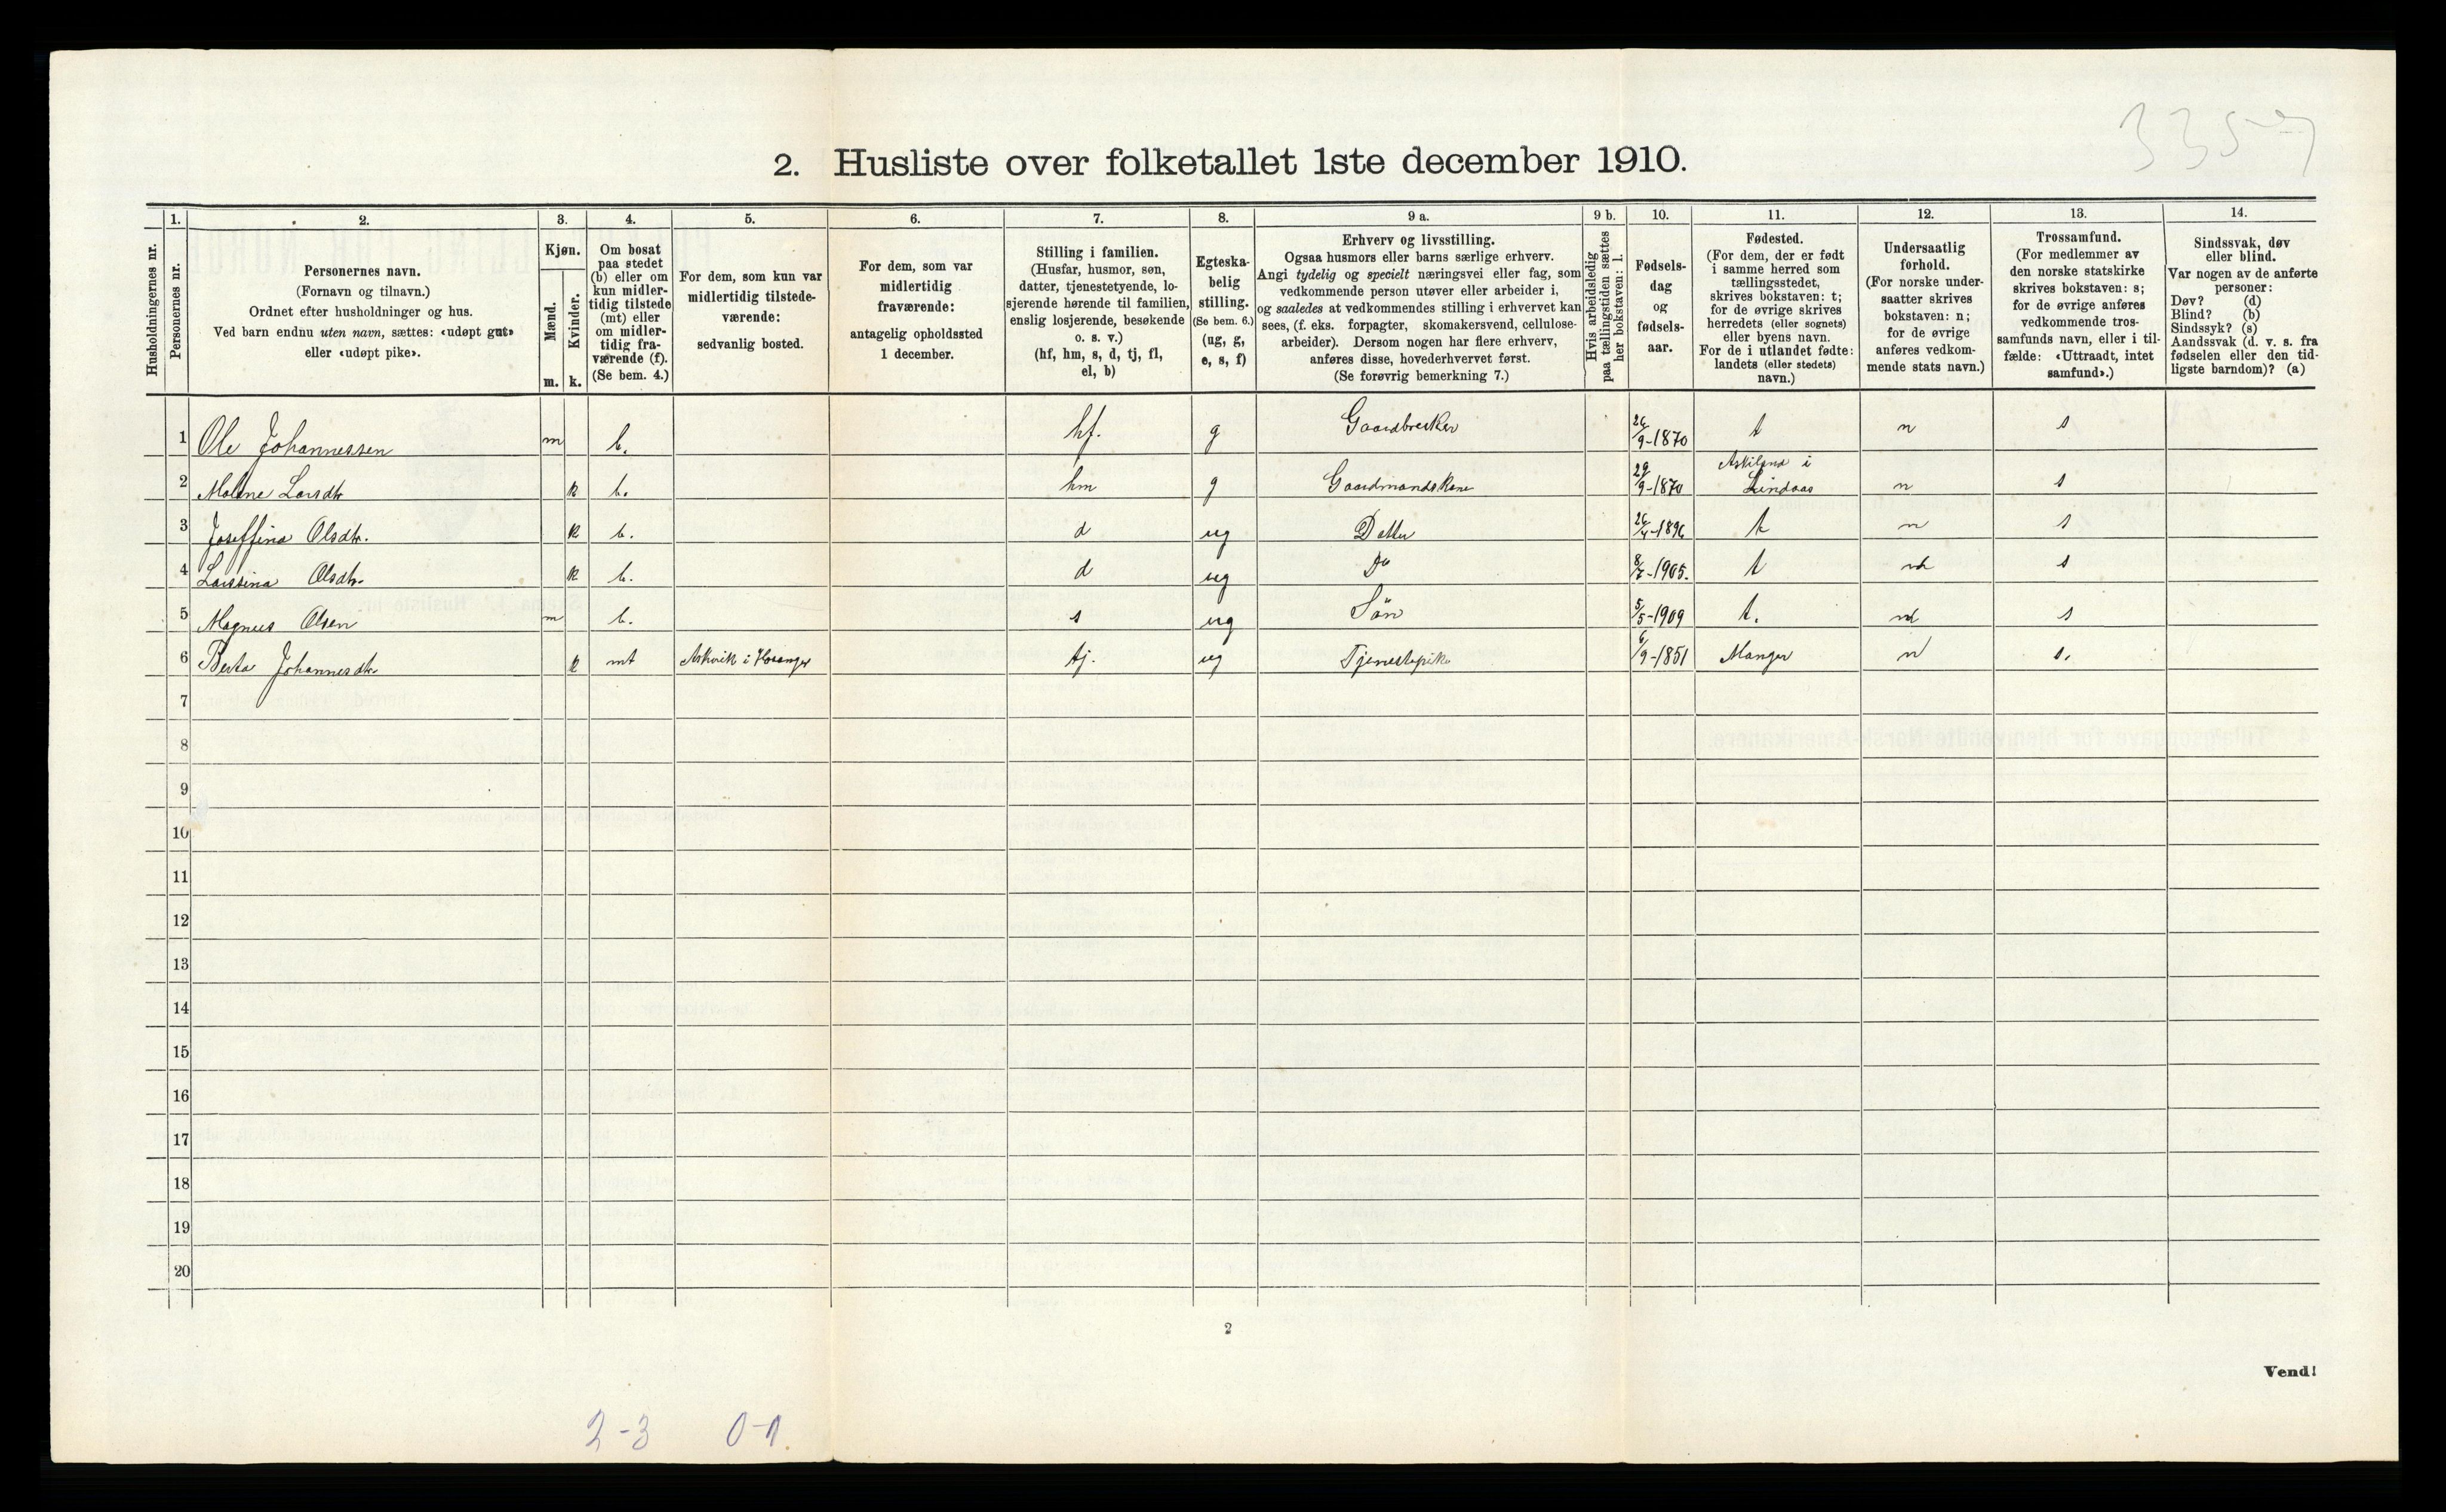 3357
2. Husliste over folketallet 1ste december 1910.
Husholdningernes nr.
1. Personernes nr.
2. Personernes navn. (Fornavn og tilnavn.) Ordnet efter husholdninger og hus. Ved barn endnu uten navn, sættes: «udøpt gut» eller «udøpt pike».
3. Kjøn. Mænd. m. Kvinder. k.
4. Om bosat paa stedet (b) eller om kun midlertidig tilstede (mt) eller om midlertidig fraværende (f). (Se bem. 4.)
5. For dem, som kun var midlertidig tilstedeværende: sedvanlig bosted.
6. For dem, som var midlertidig fraværende: antagelig opholdssted 1 december.
7. Stilling i familien. (Husfar, husmor, søn, datter, tjenestetyende, losjerende hørende til familien, enslig losjerende, besøkende o. s. v.) (hf, hm, s, d, tj, fl, el, b)
8. Egteskabelig stilling. (Se bem. 6.) (ug, g, e, s, f)
9 a. Erhverv og livsstilling. Ogsaa husmors eller barns særlige erhverv. Angi tydelig og specielt næringsvei eller fag, som vedkommende person utøver eller arbeider i, og saaledes at vedkommendes stilling i erhvervet kan sees, (f. eks. forpagter, skomakersvend, cellulosearbeider). Dersom nogen har flere erhverv, anføres disse, hovederhvervet først. (Se forøvrig bemerkning 7.)
9 b. Hvis arbeidsledig paa tællingstiden sættes her bokstaven: l.
10. Fødselsdag og fødselsaar.
11. Fødested. (For dem, der er født i samme herred som tællingsstedet, skrives bokstaven: t; for de øvrige skrives herredets (eller sognets) eller byens navn. For de i utlandet fødte: landets (eller stedets) navn.)
12. Undersaatlig forhold. (For norske undersaatter skrives bokstaven: n; for de øvrige anføres vedkommende stats navn.)
13. Trossamfund. (For medlemmer av den norske statskirke skrives bokstaven: s; for de øvrige anføres vedkommende trossamfunds navn, eller i tilfælde: «Uttraadt, intet samfund».)
14. Sindssvak, døv eller blind. Var nogen av de anførte personer: Døv? (d) Blind? (b) Sindssyk? (s) Aandssvak (d. v. s. fra fødselen eller den tidligste barndom)? (a)
1 Ole Johannessen m b. hf. g Gaardbruker 26/9-1870 t n s
2 Malene Larsdtr k b. hm g Gaardmandskone 29/9-1870 Askiland i Lindaas n s
3 Joseffina Olsdtr. k b. d ug Datter 26/4-1896 t n s
4 Larssina Olsdtr. k b. d ug Do 8/7-1905. t n s
5 Magnus Olsen m b. s ug Sön 5/5-1909 t. n s
6 Berta Johannesdtr k mt Askvik i Hosanger tj. ug Tjenestepike 6/9-1851 Manger n s.
7
8
9
10
11
12
13
14
15
16
17
18
19
20
2
Vend!
2-3 0-1.